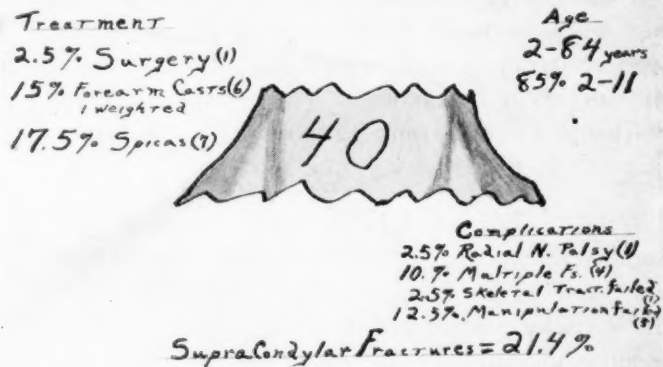 Treatment
2.5% Surgery (1)
15% Forearm Casts (6)
1 weighted
17.5% Spicas (7)
Age
2-84 years
85% 2-11
40
Complications
2.5% Radial N. Palsy (1)
10.% Multiple Fs. (4)
2.5% Skeletal Tract. failed
(1)
12.5% Manipulation failed
(5)
SupraCondylar Fractures = 21.4%